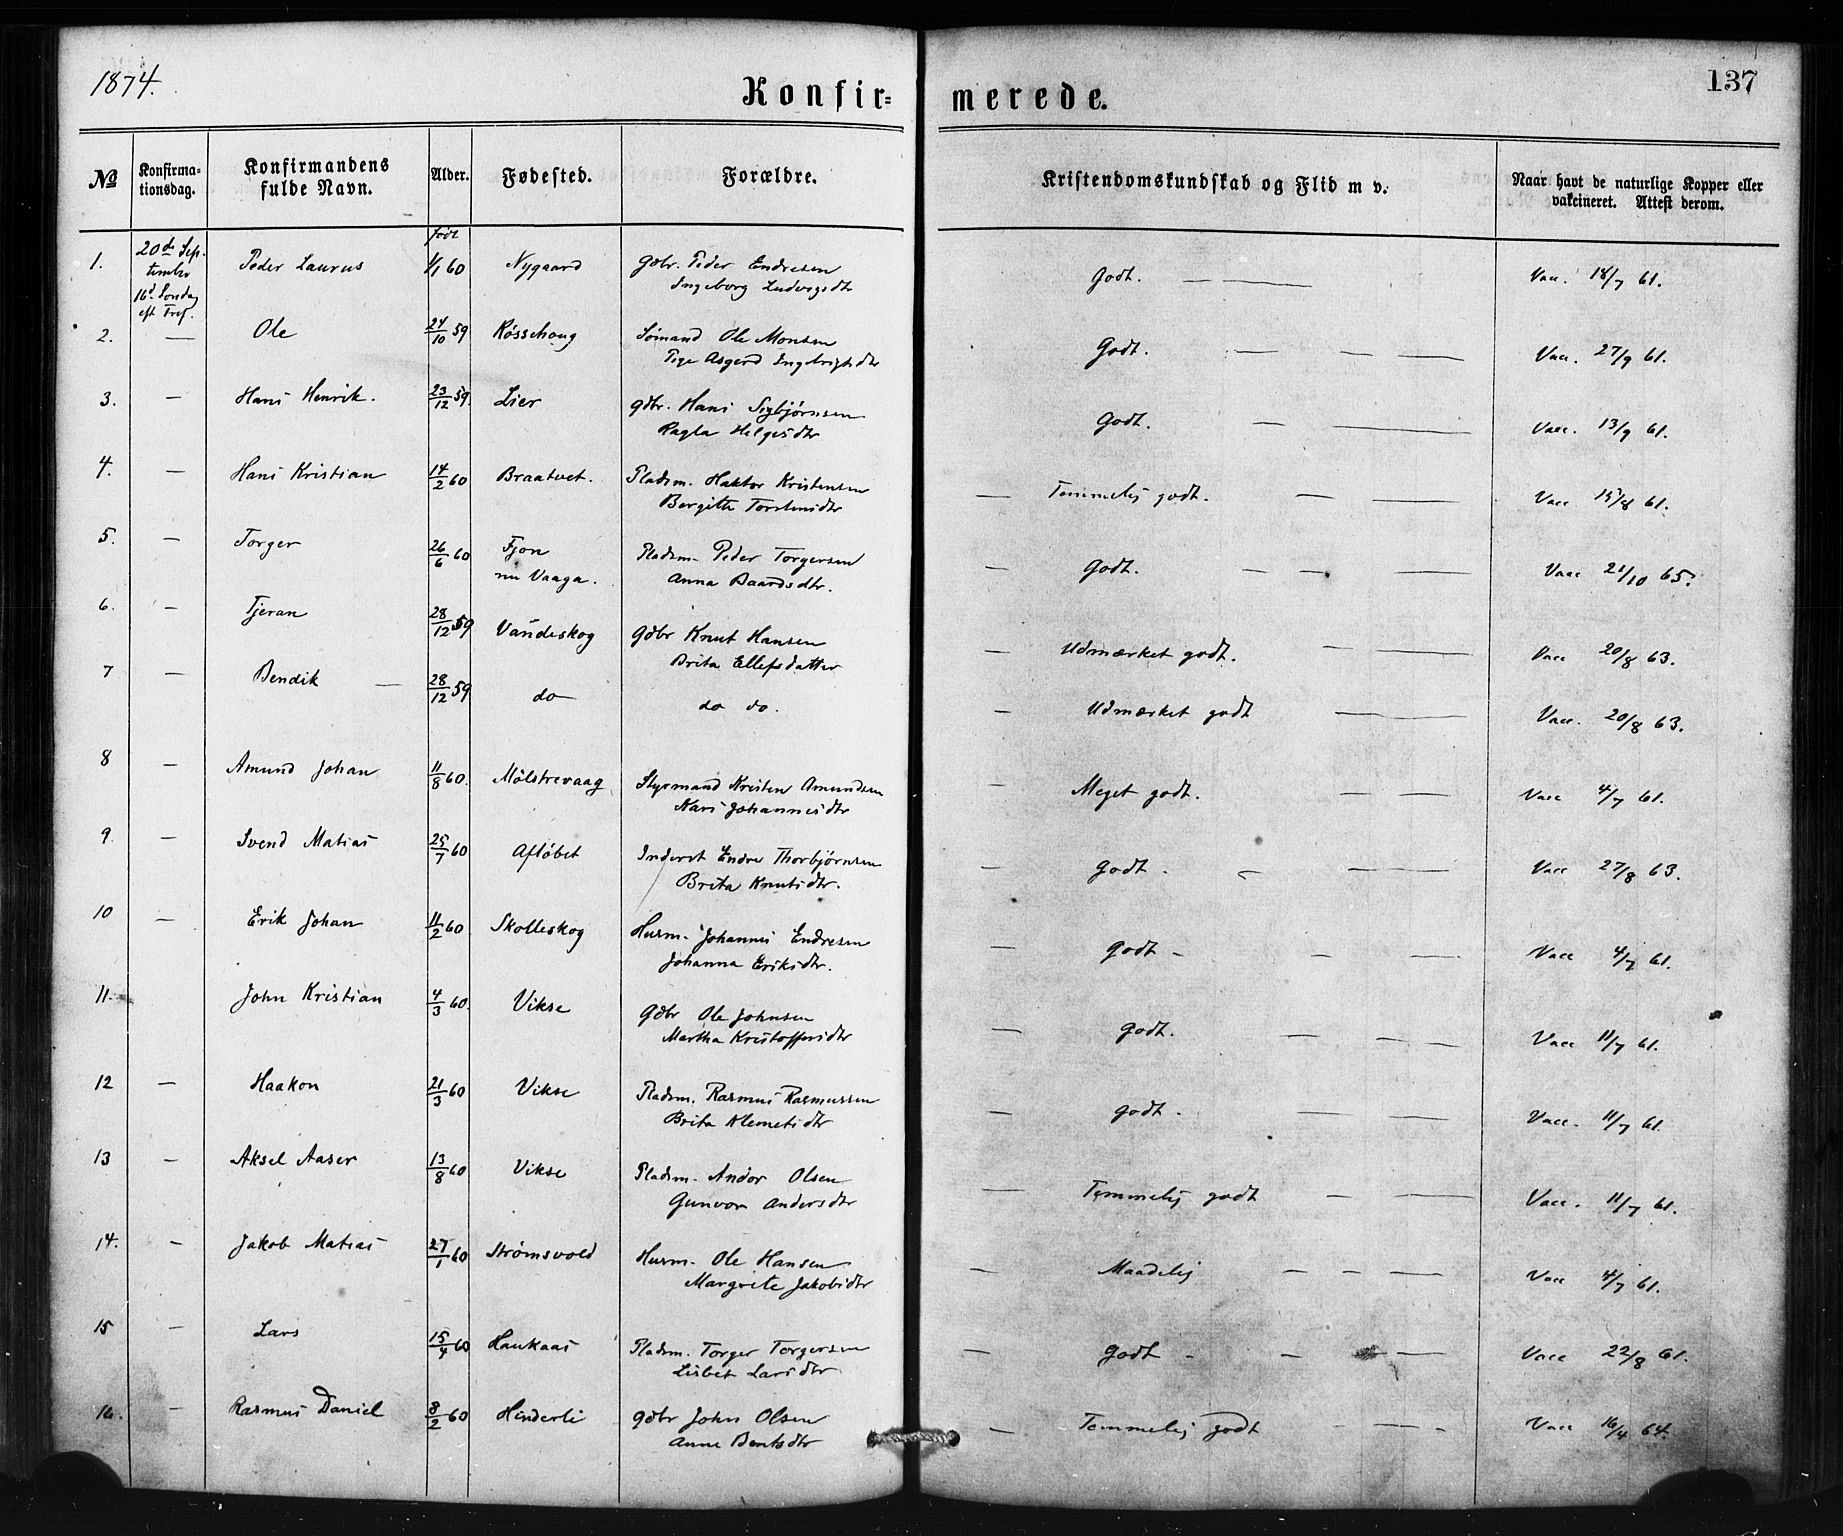 1874.
Konfir=
merede.
137
No
Konfirma-
tionsdag.
Konfirmandens
fulde Navn.
Alder.
Fødested.
Forældre.
Kristendomskundskab og Flid m v.
Naar havt de naturlige Kopper eller
vakcineret. Attest derom.
født
1. 20de Sep- Peder Laurus 1/1 60 Nygaard Gbr. Peder Endresen Godt. — — Vacc. 18/7 61.
tember
16d. Søndag Ingeborg Ludvigsdtr
eft Tref.
2. — Ole 24/10 59 Røssehaug Sømand Ole Monsen Godt. — — — Vacc. 27/9 61.
Pige Asgerd Ingebrigtsdtr
3. — Hans Henrik. 23/12 59. Lier gdbr. Hans Sigbjørnsen Godt. — — Vacc. 13/9 61.
Ragla Helgesdtr
4. — Hans Kristian 14/2 60 Braatvet. Pladsm. Haktor Kristensen — Temmelig godt. — — Vacc 15/8 61.
Bergitte Torstensdtr
5. — Torger 26/6 60 Fjon Pladsm. Peder Torgersen — Godt. — — — Vacc 21/10 65.
nu Vaaga. Anna Baardsdtr.
6. — Tjeran 28/12 59 Vandeskog Gdbr Knut Hansen — Udmærket godt. — — Vacc 20/8 63.
Brita Ellefsdatter
7 — Bendik — 28/12 59 do do do. — Udmærket godt — Vacc. 20/8 63.
8 — Amund Johan 11/8 60. Mølstrevaag Styrmand Kristen Amundsen — Meget godt. — — Vacc 4/7 61.
Kari Johannesdtr
9. — Svend Matias 25/7 60 Afløbet Inderst Endre Thorbjørnsen — Godt. — — — Vacc 27/8 63.
Brita Knutsdtr.
10 — Erik Johan 11/2 60 Skolleskog Husm. Johannes Endresen — Godt — — — Vacc 4/7 61.
Johanna Eriksdtr.
11. John Kristian 4/3 60. Vikse Gdbr Ole Johnsen — Godt. — — — Vacc 11/7 61.
Martha Kristoffersdtr
12 — Haakon 21/3 60 Vikse Pladsm. Rasmus Rasmussen — Godt. — — Vacc. 11/7 61.
Brita Klemetsdtr
13 — Aksel Aaser 13/8 60 Vikse Pladsm. Andor Olsen — Temmelig godt — — Vacc. 11/7 61.
Gunvor Andersdtr
14. — Jakob Matias 27/1 60 Strømsvold Husm. Ole Hansen — Maadelig — — — Vacc 4/7 61.
Margrete Jakobsdtr
15 — Lars 15/4 60 Haukaas Pladsm. Torger Torgersen — Godt — — — Vacc 22/8 61.
Lisbet Larsdtr
16. — Rasmus Daniel 8/2 60 Hinderli gdbr John Olsen — Temmelig godt — — Vacc 16/4 64.
Anne Bentsdtr